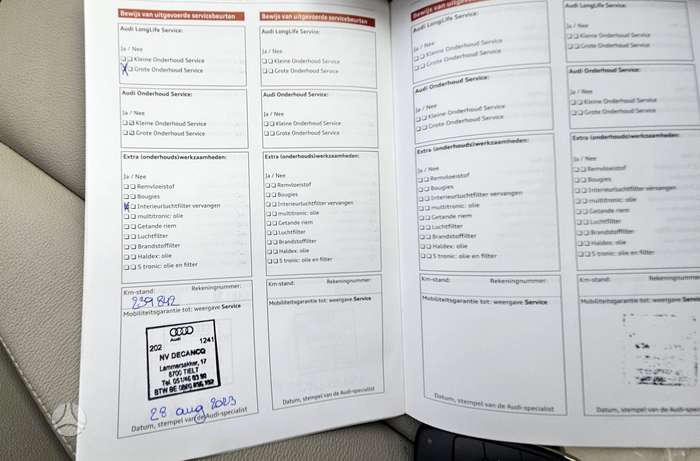 Bewijs van uitgevoerde servicebeurten
Audi LongLife Service:
Ja / Nee
Kleine Onderhoud Service
Grote Onderhoud Service
Audi Onderhoud Service:
Ja / Nee
Kleine Onderhoud Service
Grote Onderhoud Service
Extra (onderhouds)werkzaamheden:
Ja / Nee
Remvloeistof
Bougies
Interieurluchtfilter vervangen
multitronic: olie
Getande riem
Luchtfilter
Brandstoffilter
Haldex: olie
S tronic: olie en filter
Km-stand: Rekeningnummer:
239 842
Mobiliteitsgarantie tot: weergave Service
Audi
202 1241
NV DECANCQ
Lammersakker, 17
8700 TIELT
Tel. 051/46 03 90
BTW BE
28 aug 2023
Datum, stempel van de Audi-specialist
Bewijs van uitgevoerde servicebeurten
Audi LongLife Service:
Ja / Nee
Kleine Onderhoud Service
Grote Onderhoud Service
Audi Onderhoud Service:
Ja / Nee
Kleine Onderhoud Service
Grote Onderhoud Service
Extra (onderhouds)werkzaamheden:
Ja / Nee
Remvloeistof
Bougies
Interieurluchtfilter vervangen
multitronic: olie
Getande riem
Luchtfilter
Brandstoffilter
Haldex: olie
S tronic: olie en filter
Km-stand: Rekeningnummer:
Mobiliteitsgarantie tot: weergave Service
Datum, stempel van de Audi-specialist
Bewijs van uitgevoerde
Audi LongLife Service:
Ja / Nee
Kleine Onderhoud Service
Grote Onderhoud Service
Audi Onderhoud Service:
Ja / Nee
Kleine Onderhoud Service
Grote Onderhoud Service
Extra (onderhouds)werkzaamheden:
Ja / Nee
Remvloeistof
Bougies
Interieurluchtfilter vervangen
multitronic: olie
Getande riem
Luchtfilter
Brandstoffilter
Haldex: olie
S tronic: olie en filter
Km-stand: Rekeningnummer:
Mobiliteitsgarantie tot: weergave Service
Datum, stempel van de Audi-specialist
Audi LongLife Service:
Ja / Nee
Kleine Onderhoud Service
Grote Onderhoud Service
Audi Onderhoud Service:
Ja / Nee
Kleine Onderhoud Service
Grote Onderhoud Service
Extra (onderhouds)werkzaamheden:
Ja / Nee
Remvloeistof
Bougies
Interieurluchtfilter vervangen
multitronic: olie
Getande riem
Luchtfilter
Brandstoffilter
Haldex: olie
S tronic: olie en filter
Km-stand: Rekeningnummer:
Mobiliteitsgarantie tot: weergave Service
Datum, stempel van de Audi-specialist